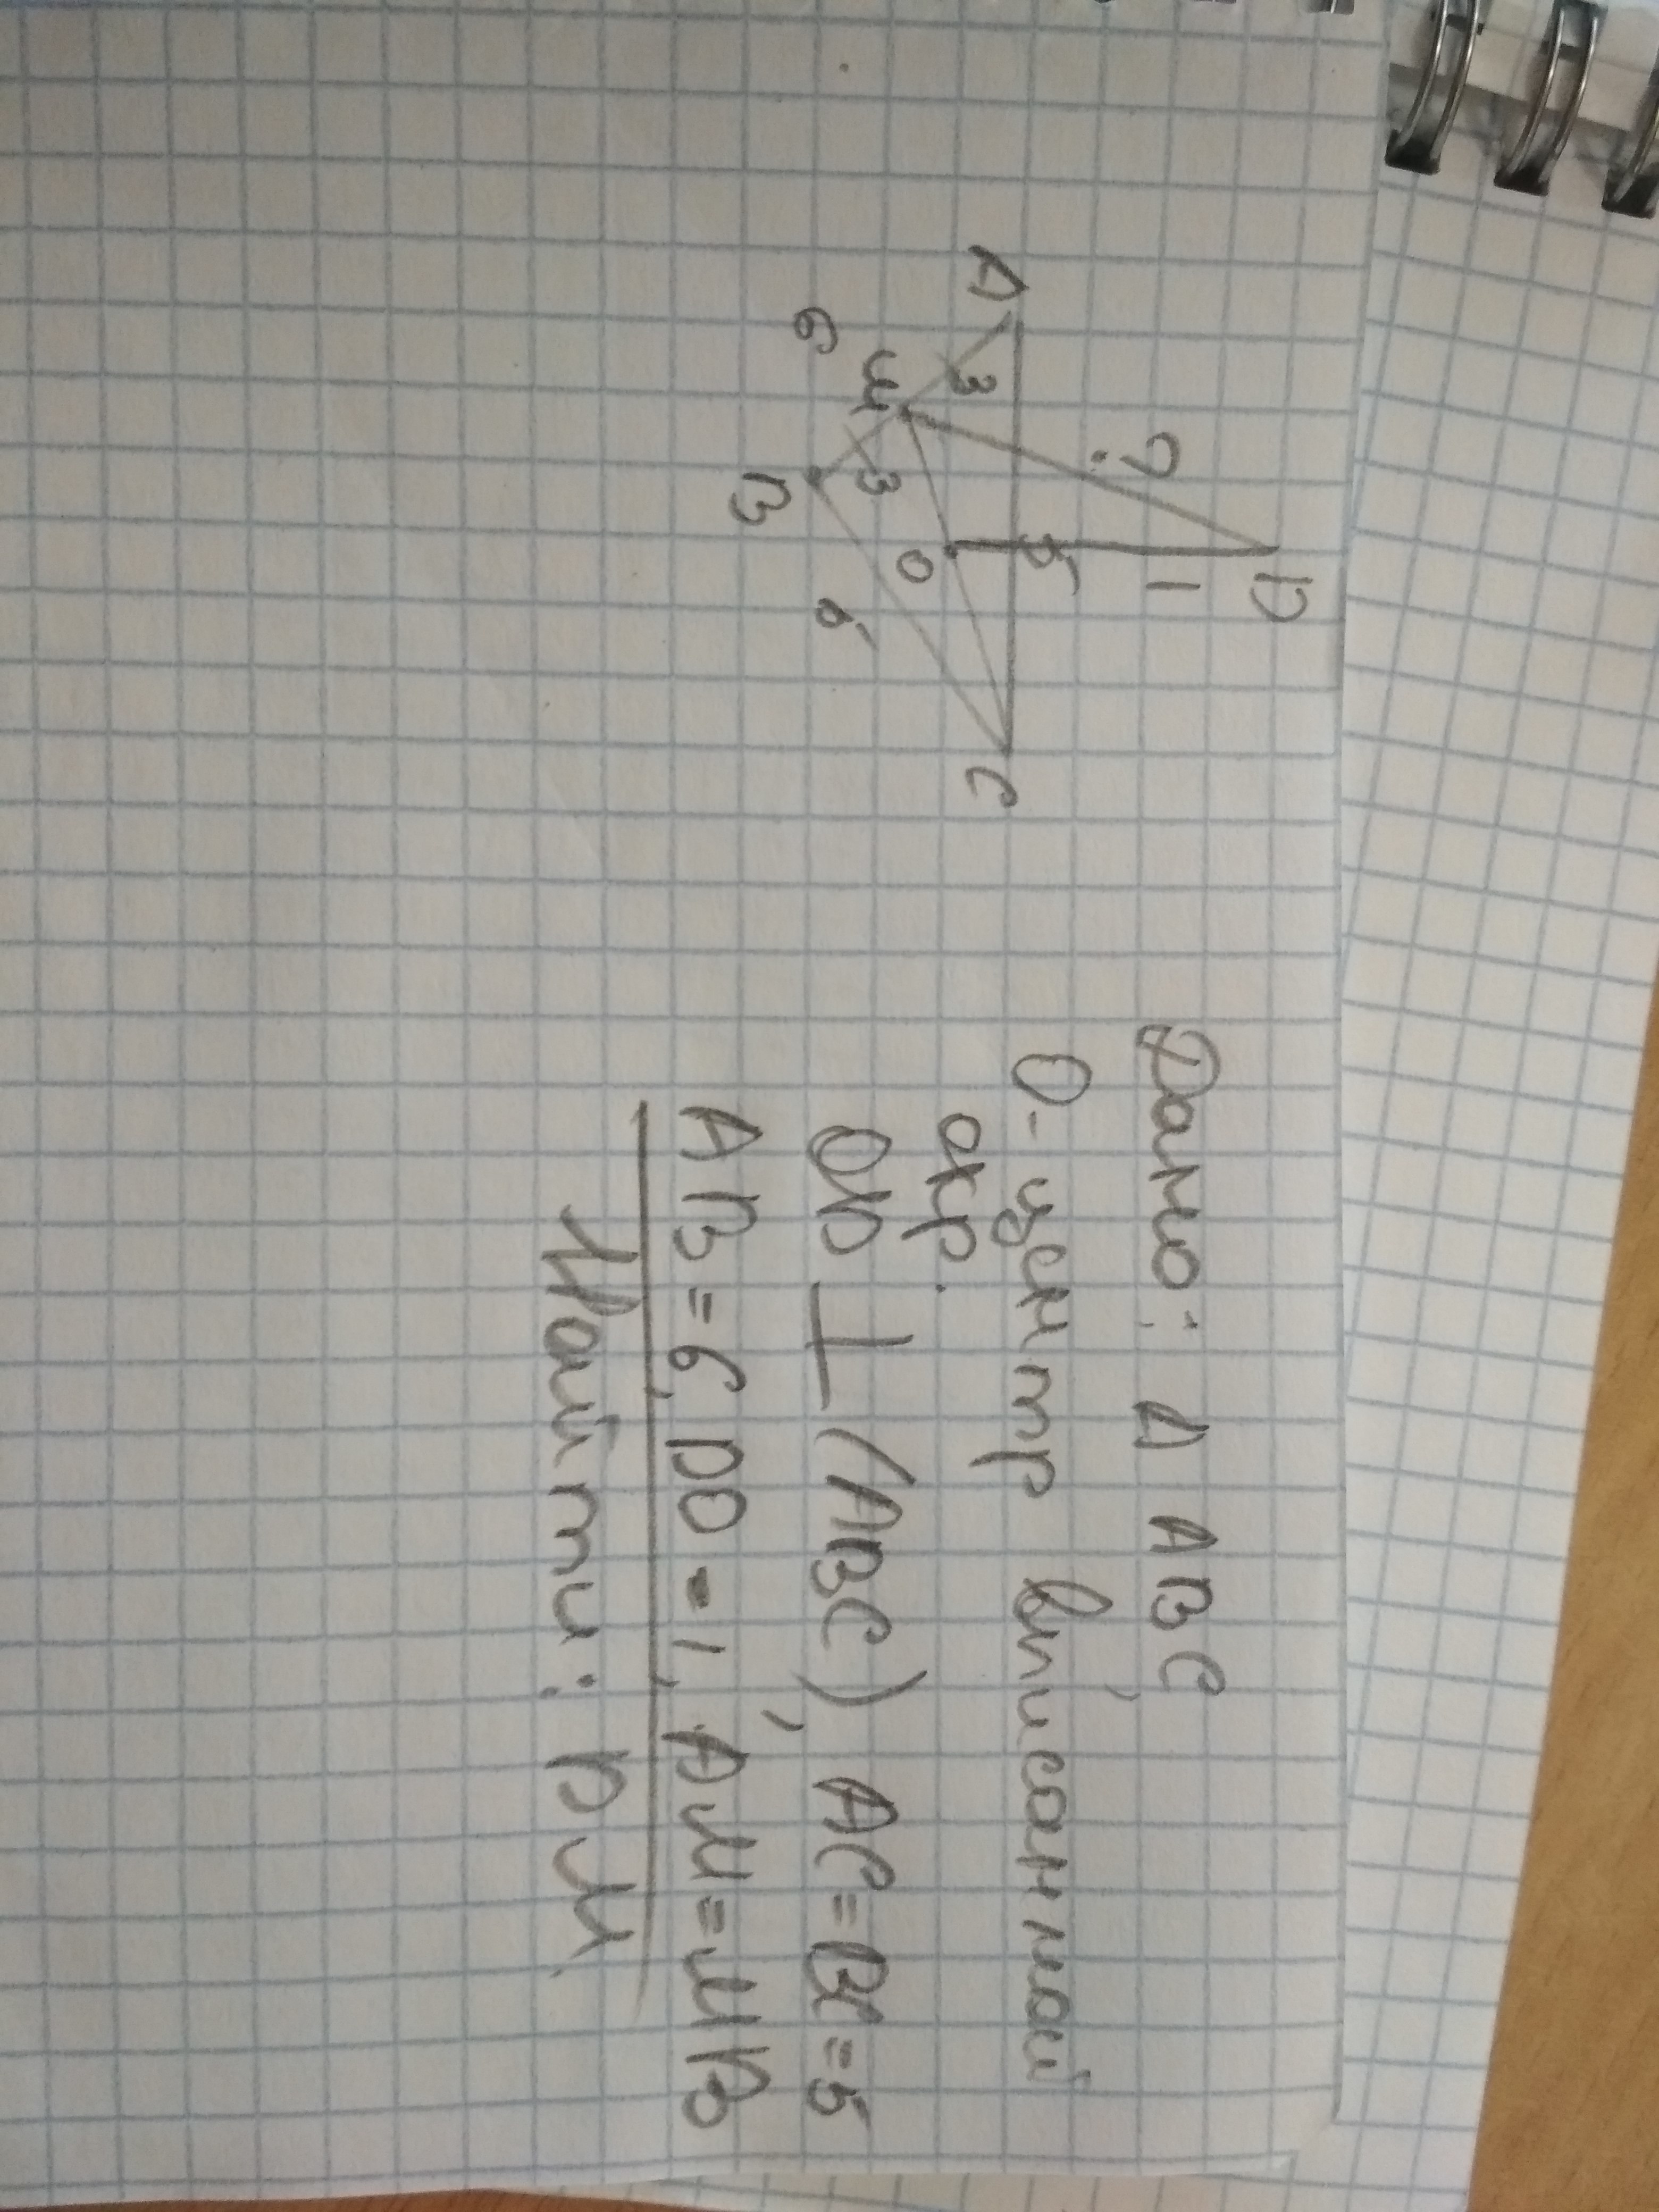 Дано: Δ ABC,
O - центр вписанной
окр.
OD ⊥ (ABC), AC = BC = 5
AB = 6, DO = 1, AM = MB
Найти: DM
D
?
1
5
A
3
C
M
O
6
3
5
B